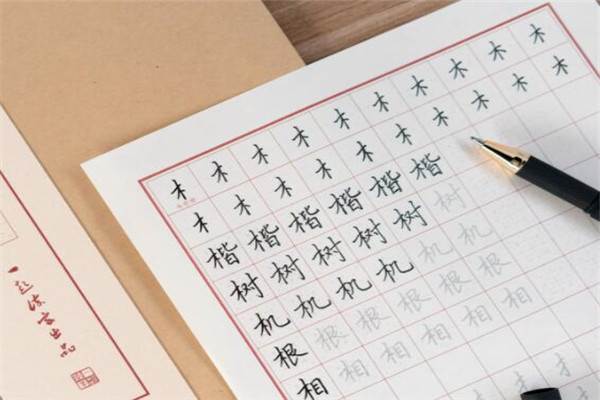 木木木木木木木木木木
木木木木木木木木木木
楷楷楷楷楷楷
树树树树树树
机机机机机机
根根根根根根
相相相相相相
一起练字出品